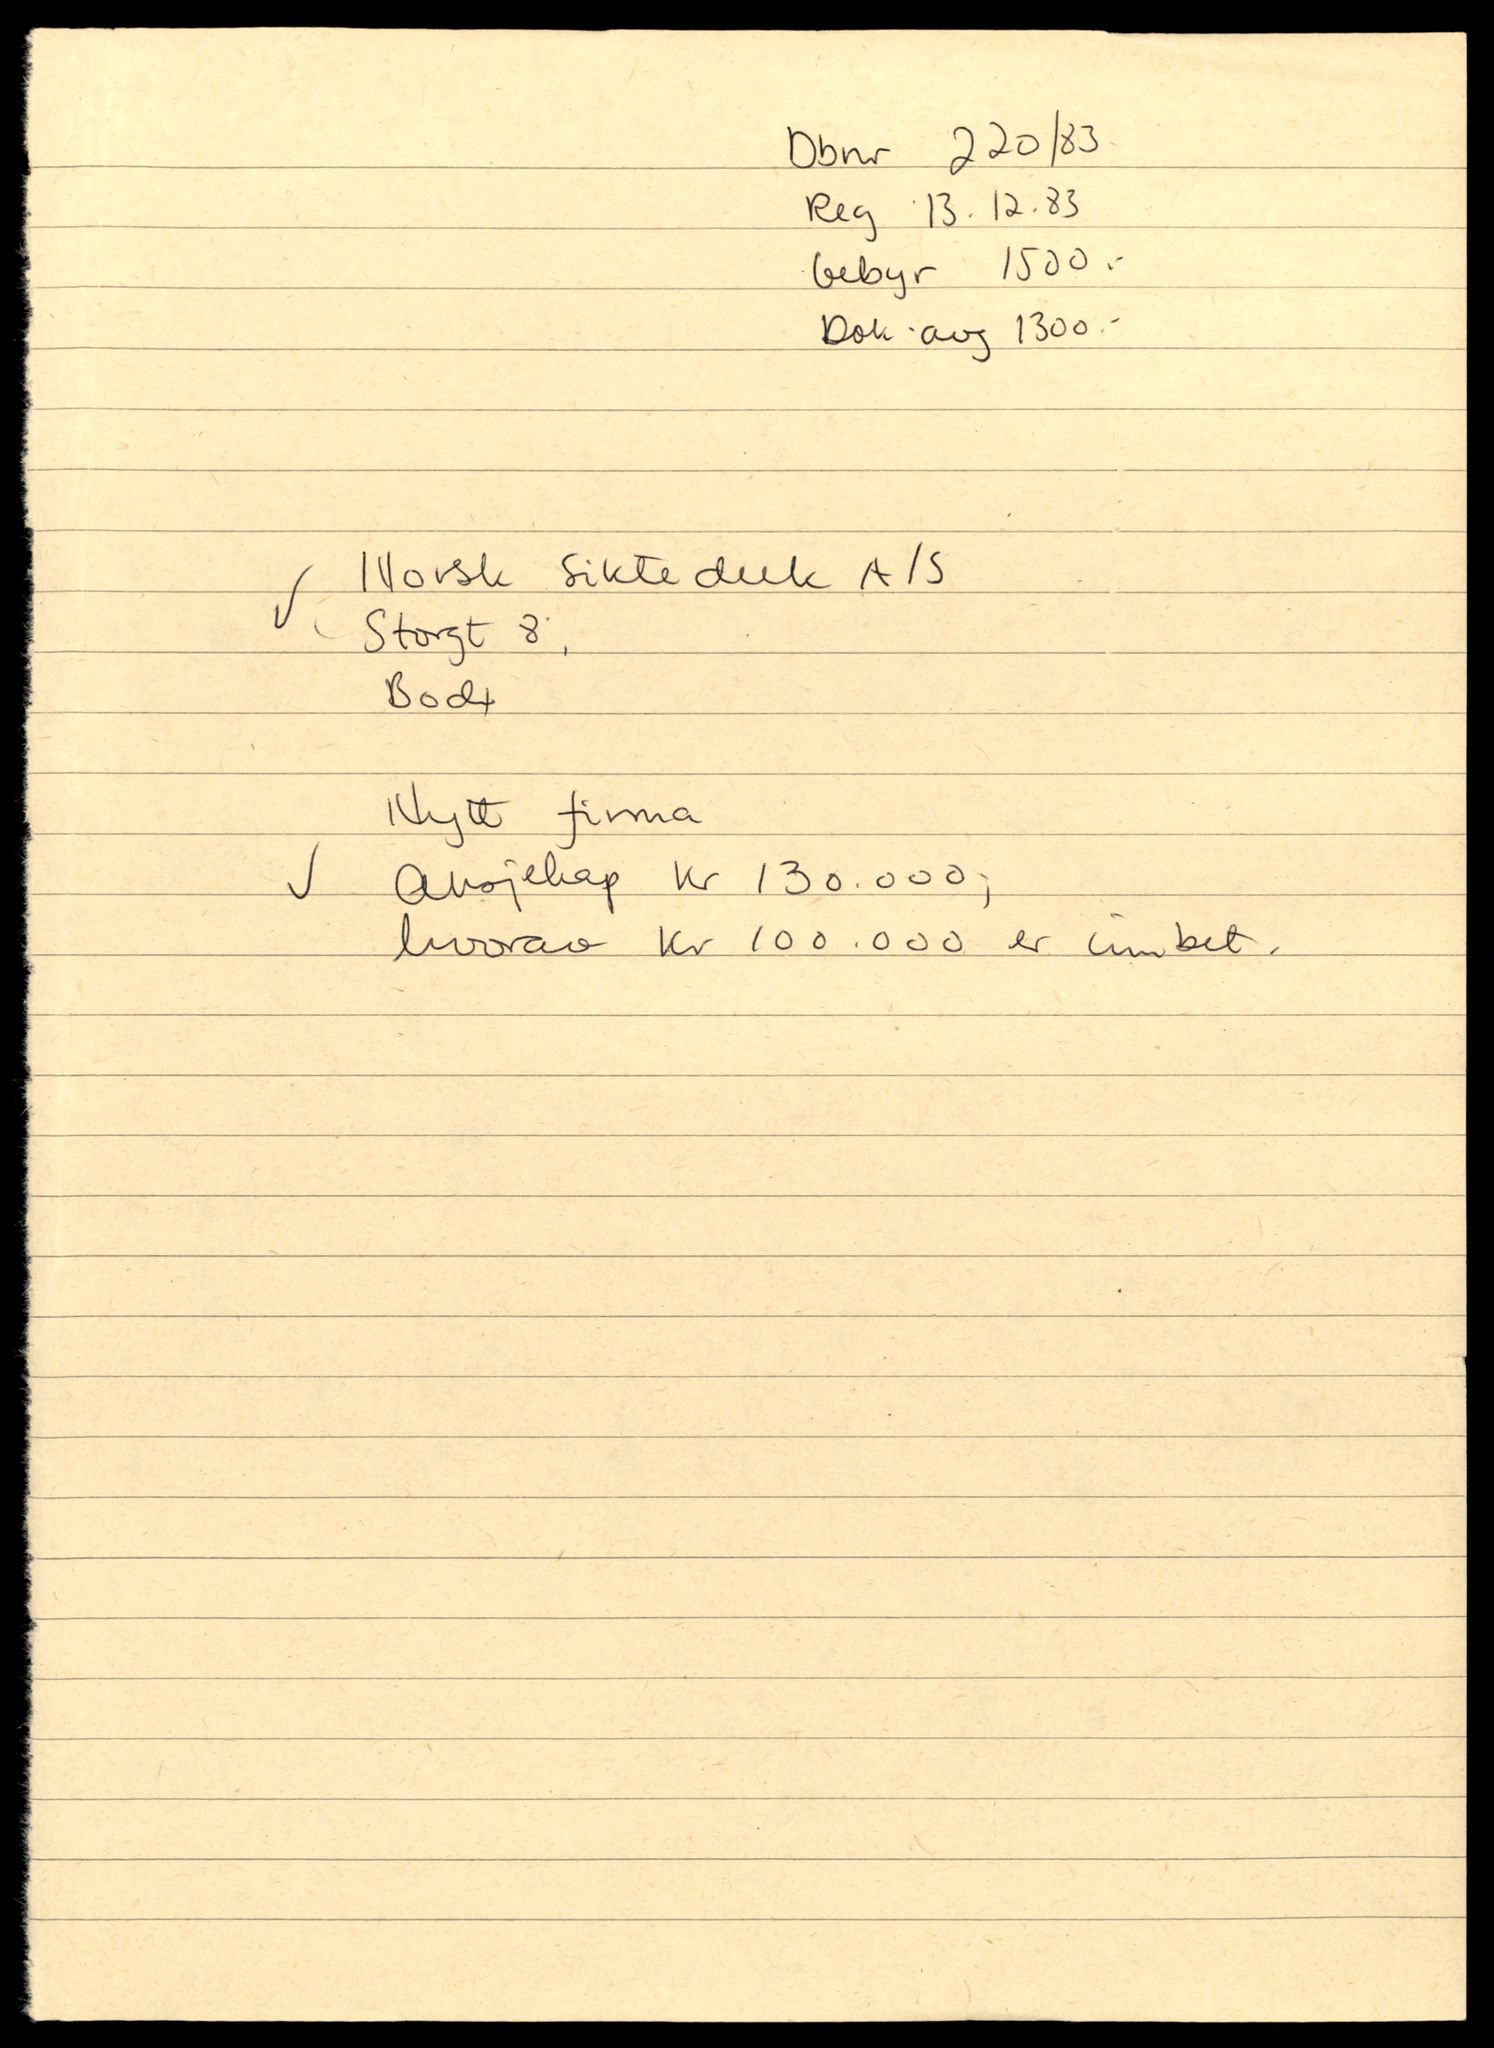 Dbnr 220/83
Reg 13.12.83
Gebyr 1500.-
Dok.avg 1300.-
✓ Norsk Sikteduk A/S
Storgt 8,
Bodø
Nytt firma
✓ Aksjekap kr 130.000,
hvorav kr 100.000 er innbet.